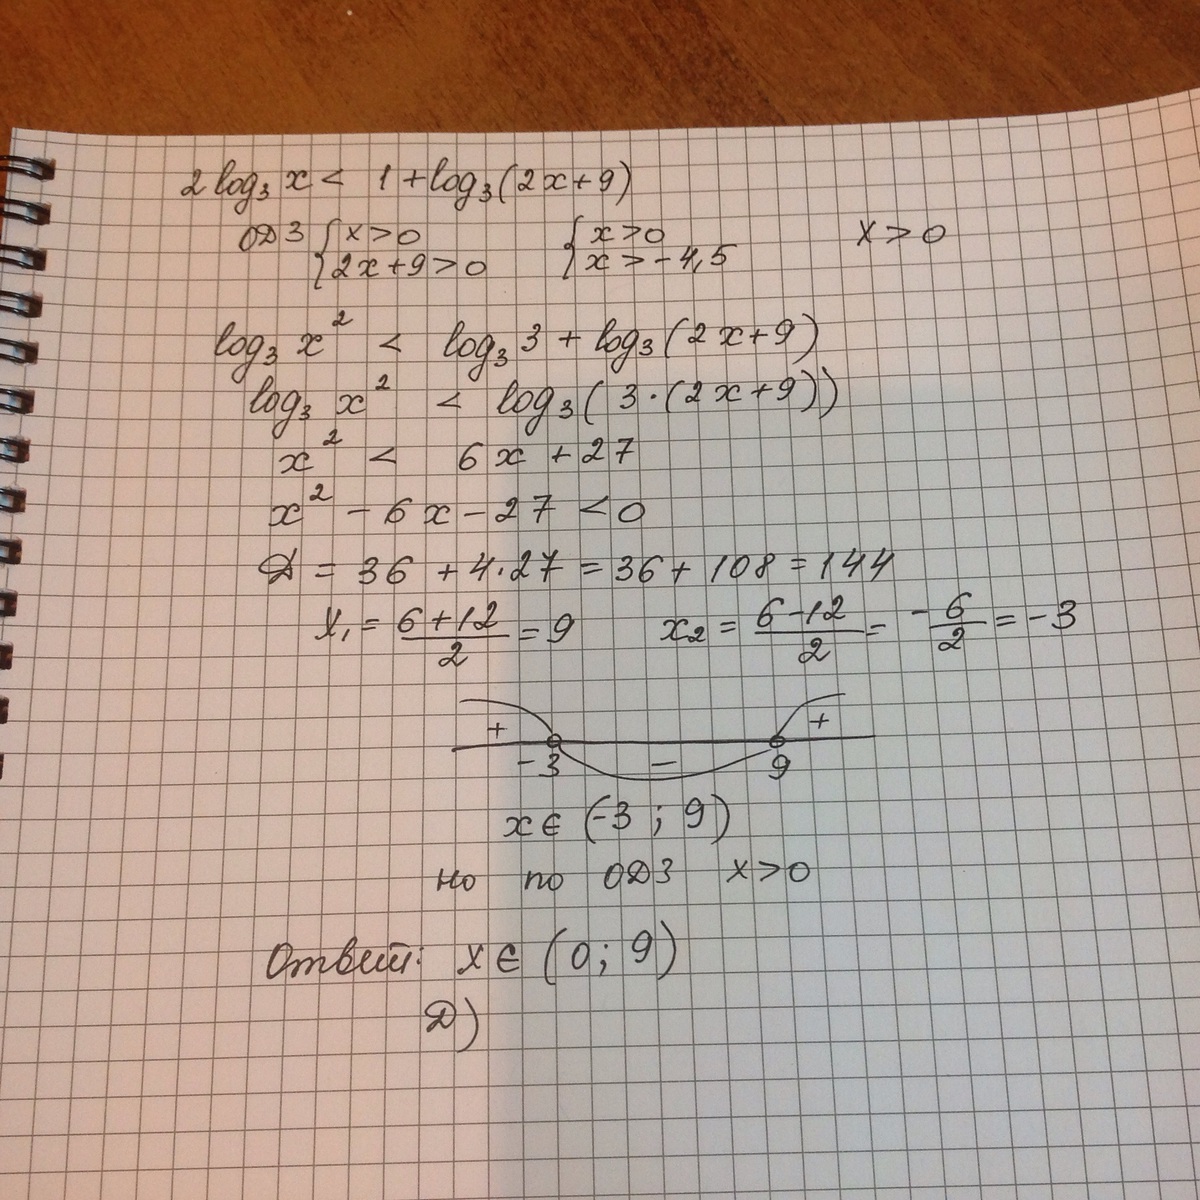 2 log₃ x < 1 + log₃(2x+9)
ОДЗ { x>0 { x>0 x>0
{ 2x+9>0 { x>-4,5
log₃ x² < log₃ 3 + log₃(2x+9)
log₃ x² < log₃(3·(2x+9))
x² < 6x + 27
x² - 6x - 27 < 0
D = 36 + 4·27 = 36 + 108 = 144
x₁ = (6+12)/2 = 9 x₂ = (6-12)/2 = -6/2 = -3
+ - +
-3 9
x ∈ (-3; 9)
но по ОДЗ x>0
Ответ: x ∈ (0; 9)
D)